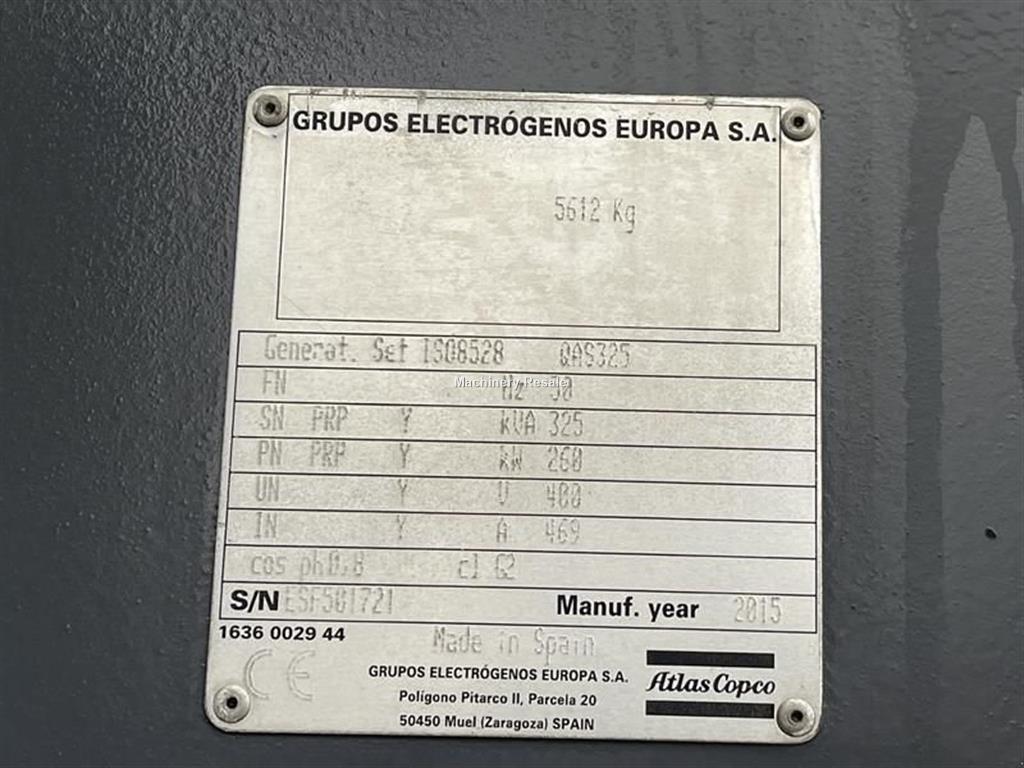 GRUPOS ELECTRÓGENOS EUROPA S.A.
5612 Kg
Generat. Set ISO8528 QAS325
Machinery Resale
FN Hz 50
SN PRP Y kVA 325
PN PRP Y kW 260
UN Y V 400
IN Y A 469
cos ph0,8 cl G2
S/N ESF501721 Manuf. year 2015
1636 0029 44
Made in Spain
CE
GRUPOS ELECTRÓGENOS EUROPA S.A.
Atlas Copco
Polígono Pitarco II, Parcela 20
50450 Muel (Zaragoza) SPAIN